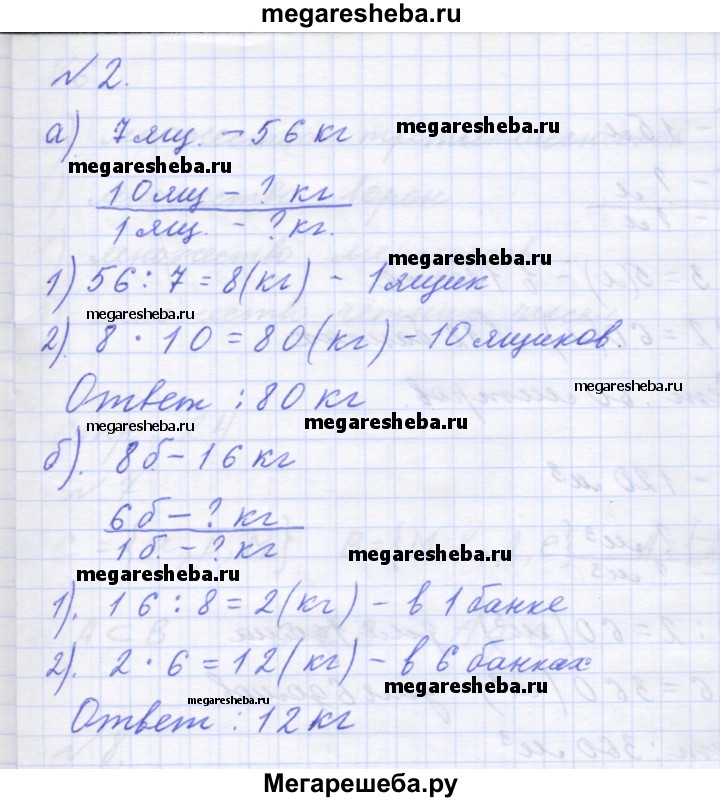 megaresheba.ru
№ 2.
а) 7 ящ. – 56 кг
megaresheba.ru
megaresheba.ru
10 ящ – ? кг
1 ящ. – ? кг.
megaresheba.ru
1) 56 : 7 = 8 (кг) – 1 ящик
megaresheba.ru
2). 8 · 10 = 80 (кг) – 10 ящиков.
megaresheba.ru
Ответ : 80 кг
megaresheba.ru
б). 8 б – 16 кг
6 б – ? кг
1 б. – ? кг
megaresheba.ru
megaresheba.ru
1). 16 : 8 = 2 (кг) – в 1 банке
2). 2 · 6 = 12 (кг) – в 6 банках
megaresheba.ru
megaresheba.ru
Ответ : 12 кг
Мегарешеба.ру